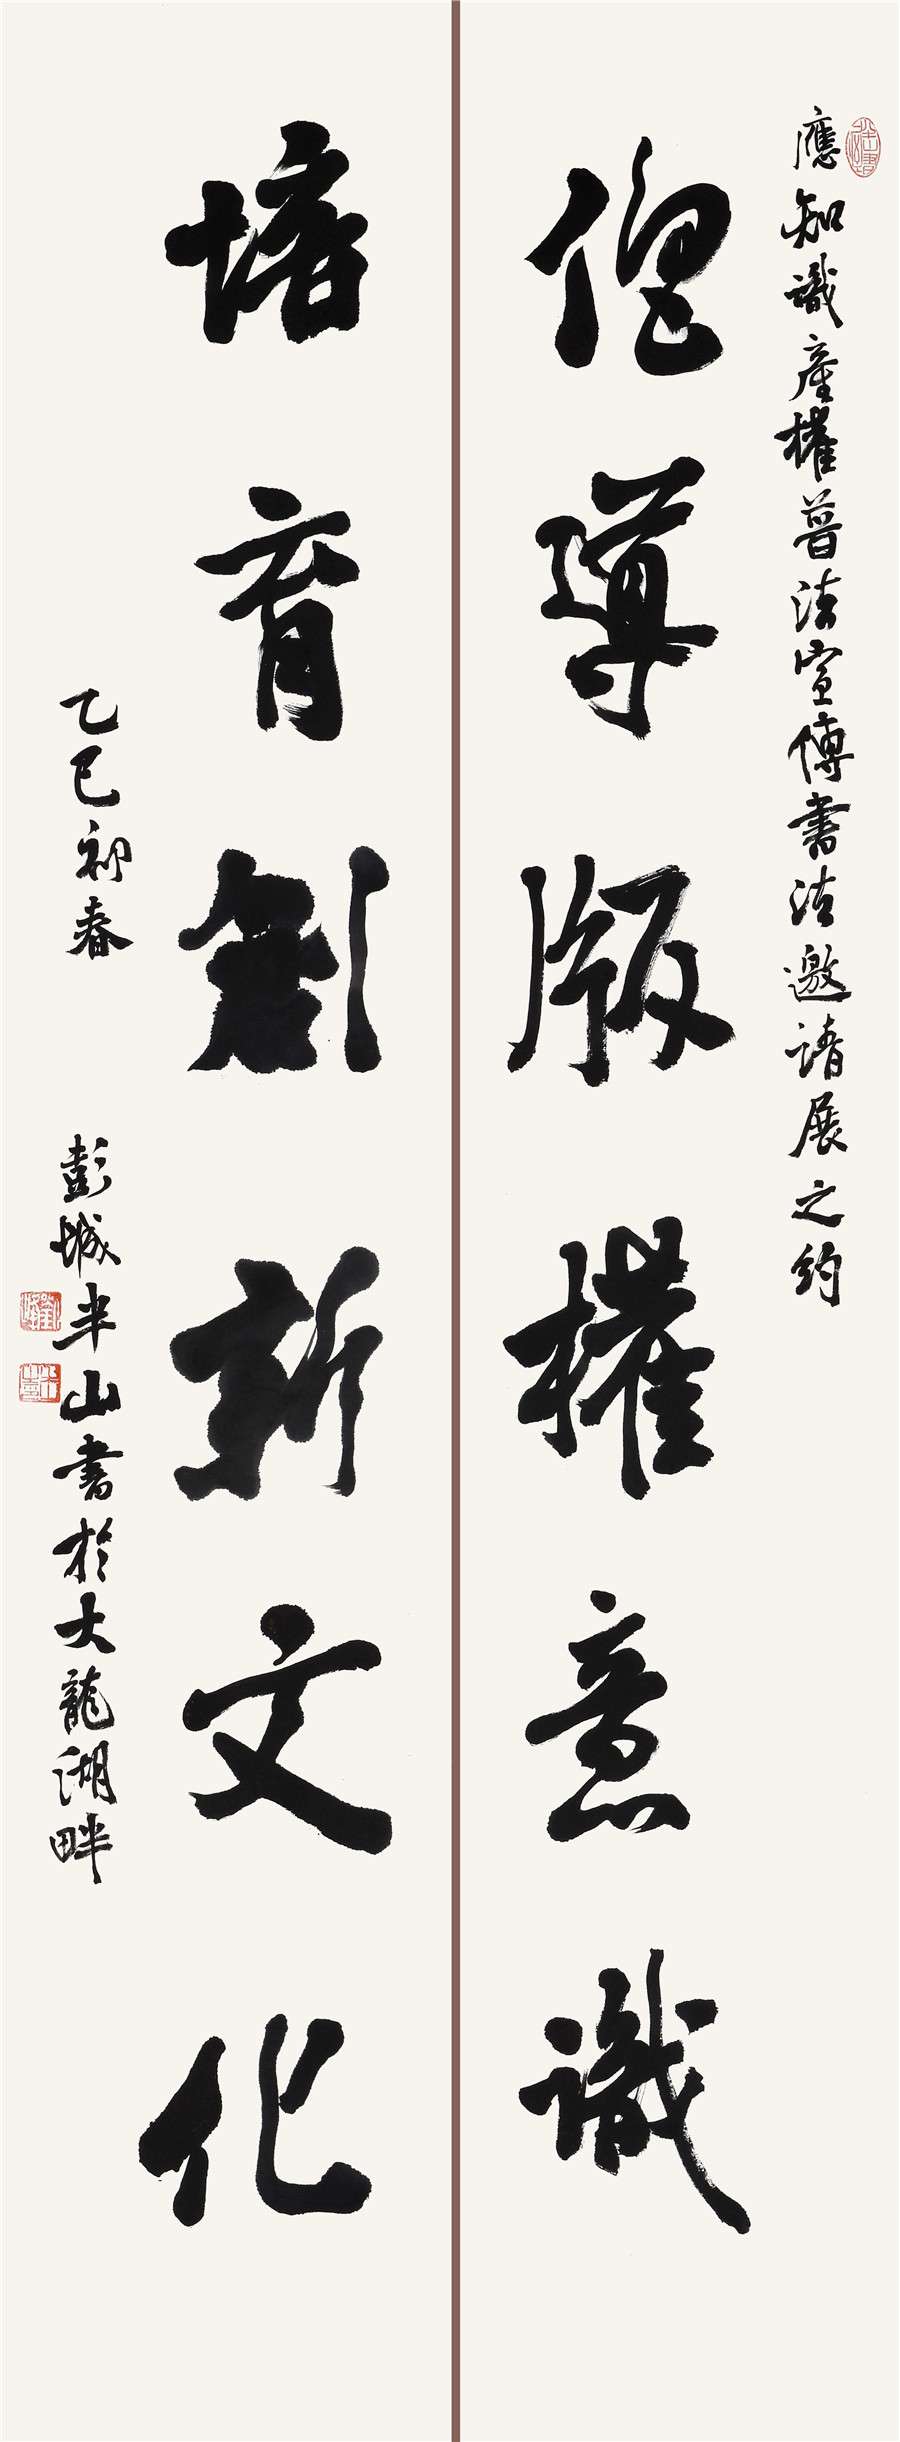 應知識産權普法宣傳書法邀請展之約
倡導版權意識
培育創新文化
乙巳初春 彭城半山書於大龍湖畔